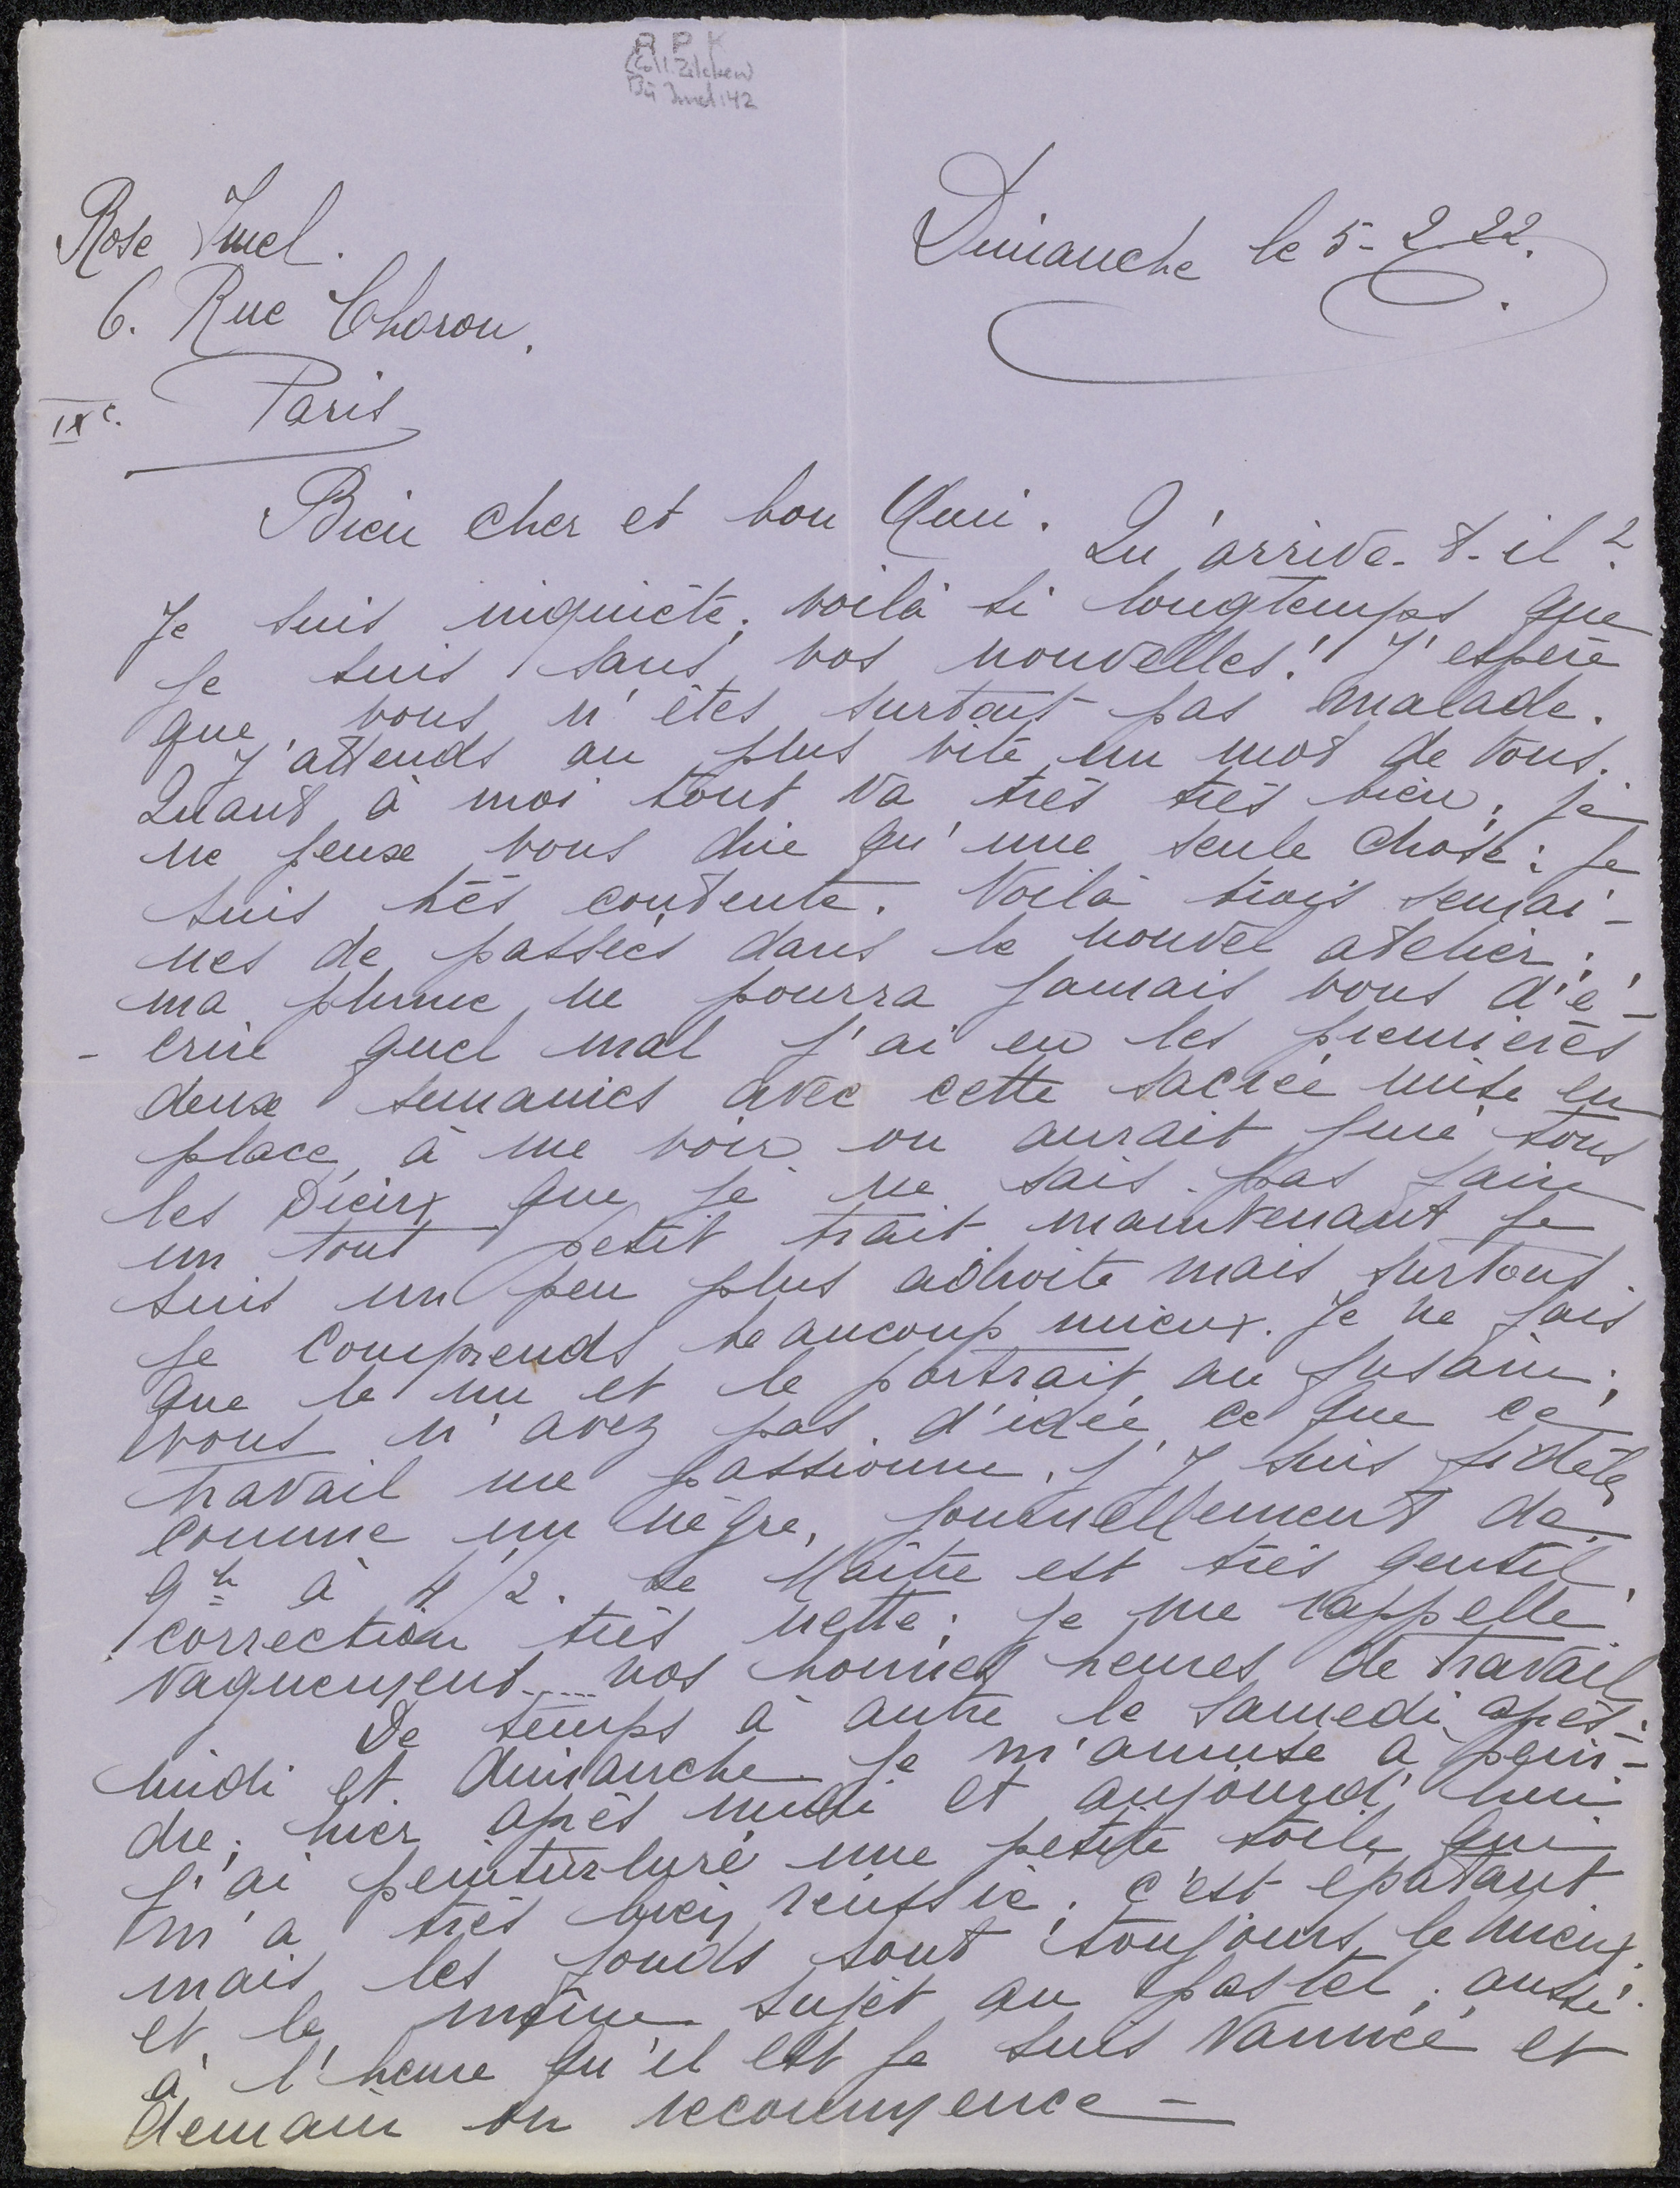 R P K
(Coll. Zilcken)
Imel 142
Rose Imel.
6. Rue Choron.
IXe. Paris
Dimanche le 5-2-22.
Bien cher et bon Ami. Qu'arrive-t-il?
Je suis inquiète; voilà si longtemps que
je suis sans vos nouvelles! J'espère
que vous n'êtes surtout pas malade.
J'attends au plus vite un mot de vous.
Quant à moi tout va très très bien, je
ne peux vous dire qu'une seule chose: je
suis très contente. Voilà trois semai-
nes de passées dans le nouvel atelier;
ma plume ne pourra jamais vous d'é-
-crire quel mal j'ai eu les premières
deux semaines avec cette sacrée mise en
place, à me voir on aurait juré tous
les Dieux que je ne sais pas faire
un tout petit trait maintenant je
suis un peu plus adroite mais surtout
je comprends beaucoup mieux. Je ne fais
que le nu et le portrait au fusain;
vous n'avez pas d'idée ce que ce
travail me passionne, j'y suis fidèle
comme un nègre, journellement de
9h à 4 1/2. Le Maître est très gentil,
correction très nette; je me rappelle
vaguement.... nos bonnes heures de travail
De temps à autre le samedi après-
midi et dimanche je m'amuse à pein-
dre; hier après midi et aujourd'hui
j'ai peinturluré une petite toile qui
m'a très bien réussie; c'est épatant
mais les fonds sont toujours le mieux.
et le même sujet au pastel; aussi
à l'heure qu'il est je suis vannée et
demain on recommence -